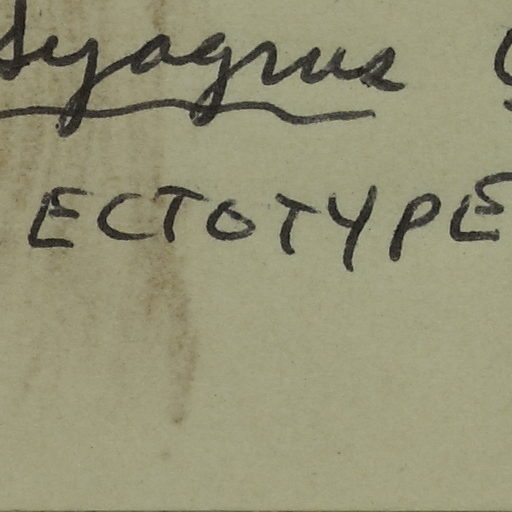 Syagrus
ECTOTYPE